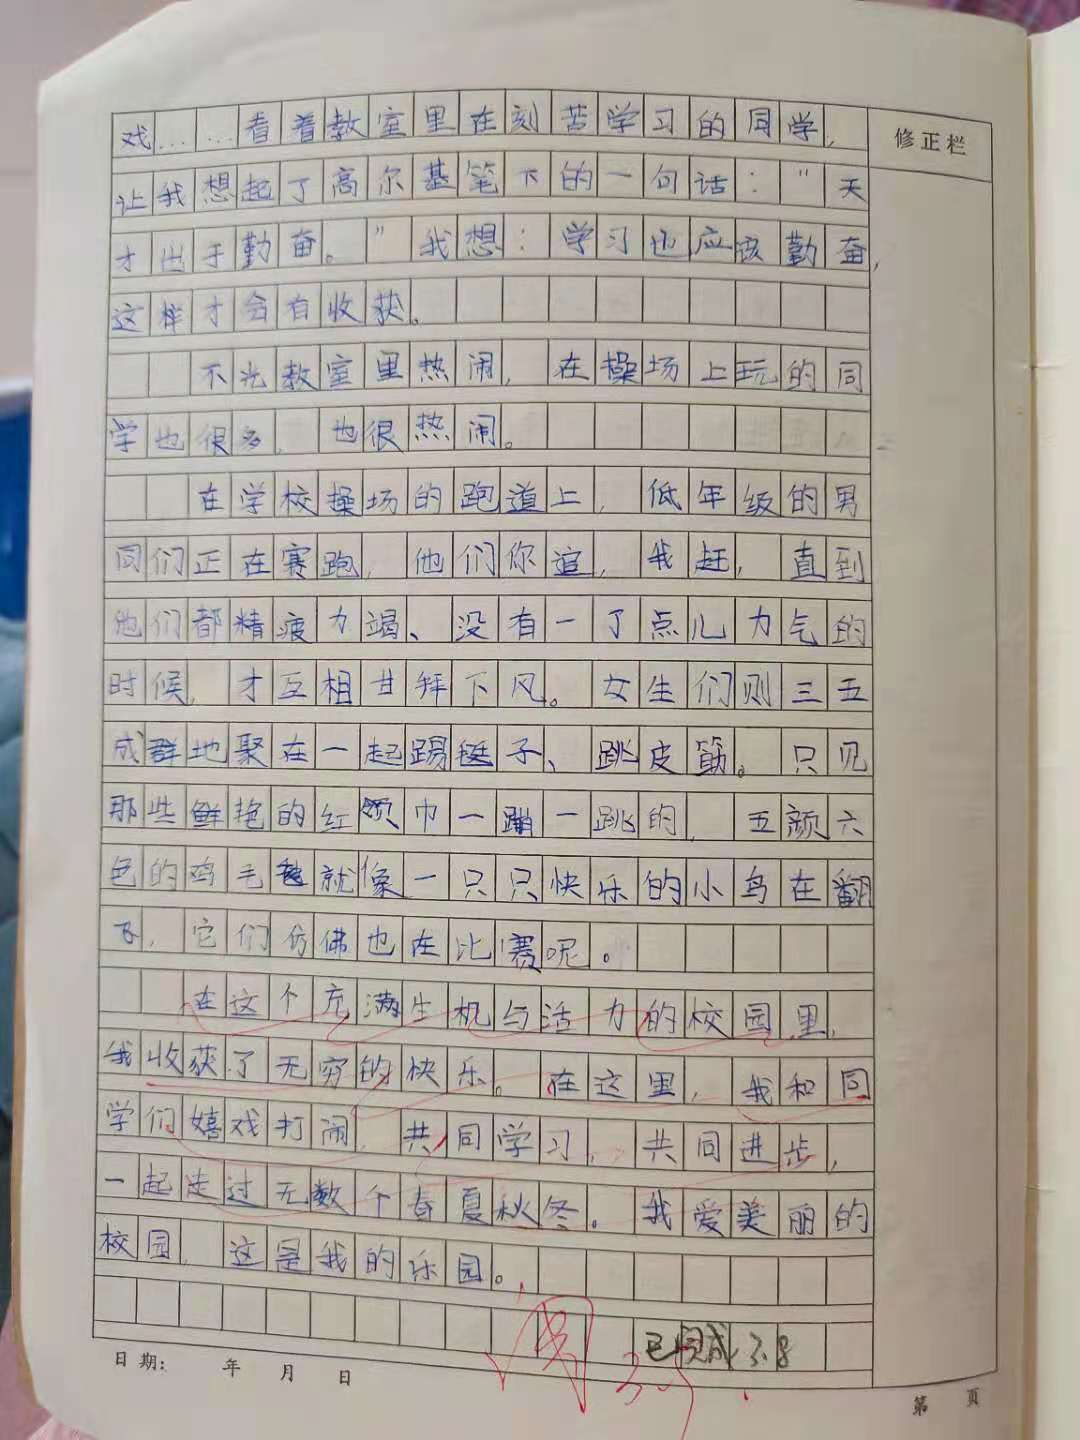 修正栏
戏……看着教室里在刻苦学习的同学，
让我想起了高尔基笔下的一句话："天
才出于勤奋。"我想：学习也应该勤奋，
这样才会有收获。
不光教室里热闹，在操场上玩的同
学也很多，也很热闹。
在学校操场的跑道上，低年级的男
同们正在赛跑，他们你追，我赶，直到
他们都精疲力竭、没有一丁点儿力气的
时候，才互相甘拜下风。女生们则三五
成群地聚在一起踢毽子、跳皮筋。只见
那些鲜艳的红领巾一蹦一跳的，五颜六
色的鸡毛毽就像一只只快乐的小鸟在翻
飞，它们仿佛也在比赛呢。
在这个充满生机与活力的校园里，
我收获了无穷的快乐。在这里，我和同
学们嬉戏打闹，共同学习，共同进步，
一起走过无数个春夏秋冬。我爱美丽的
校园，这是我的乐园。
3.8
日期： 年 月 日
第 页